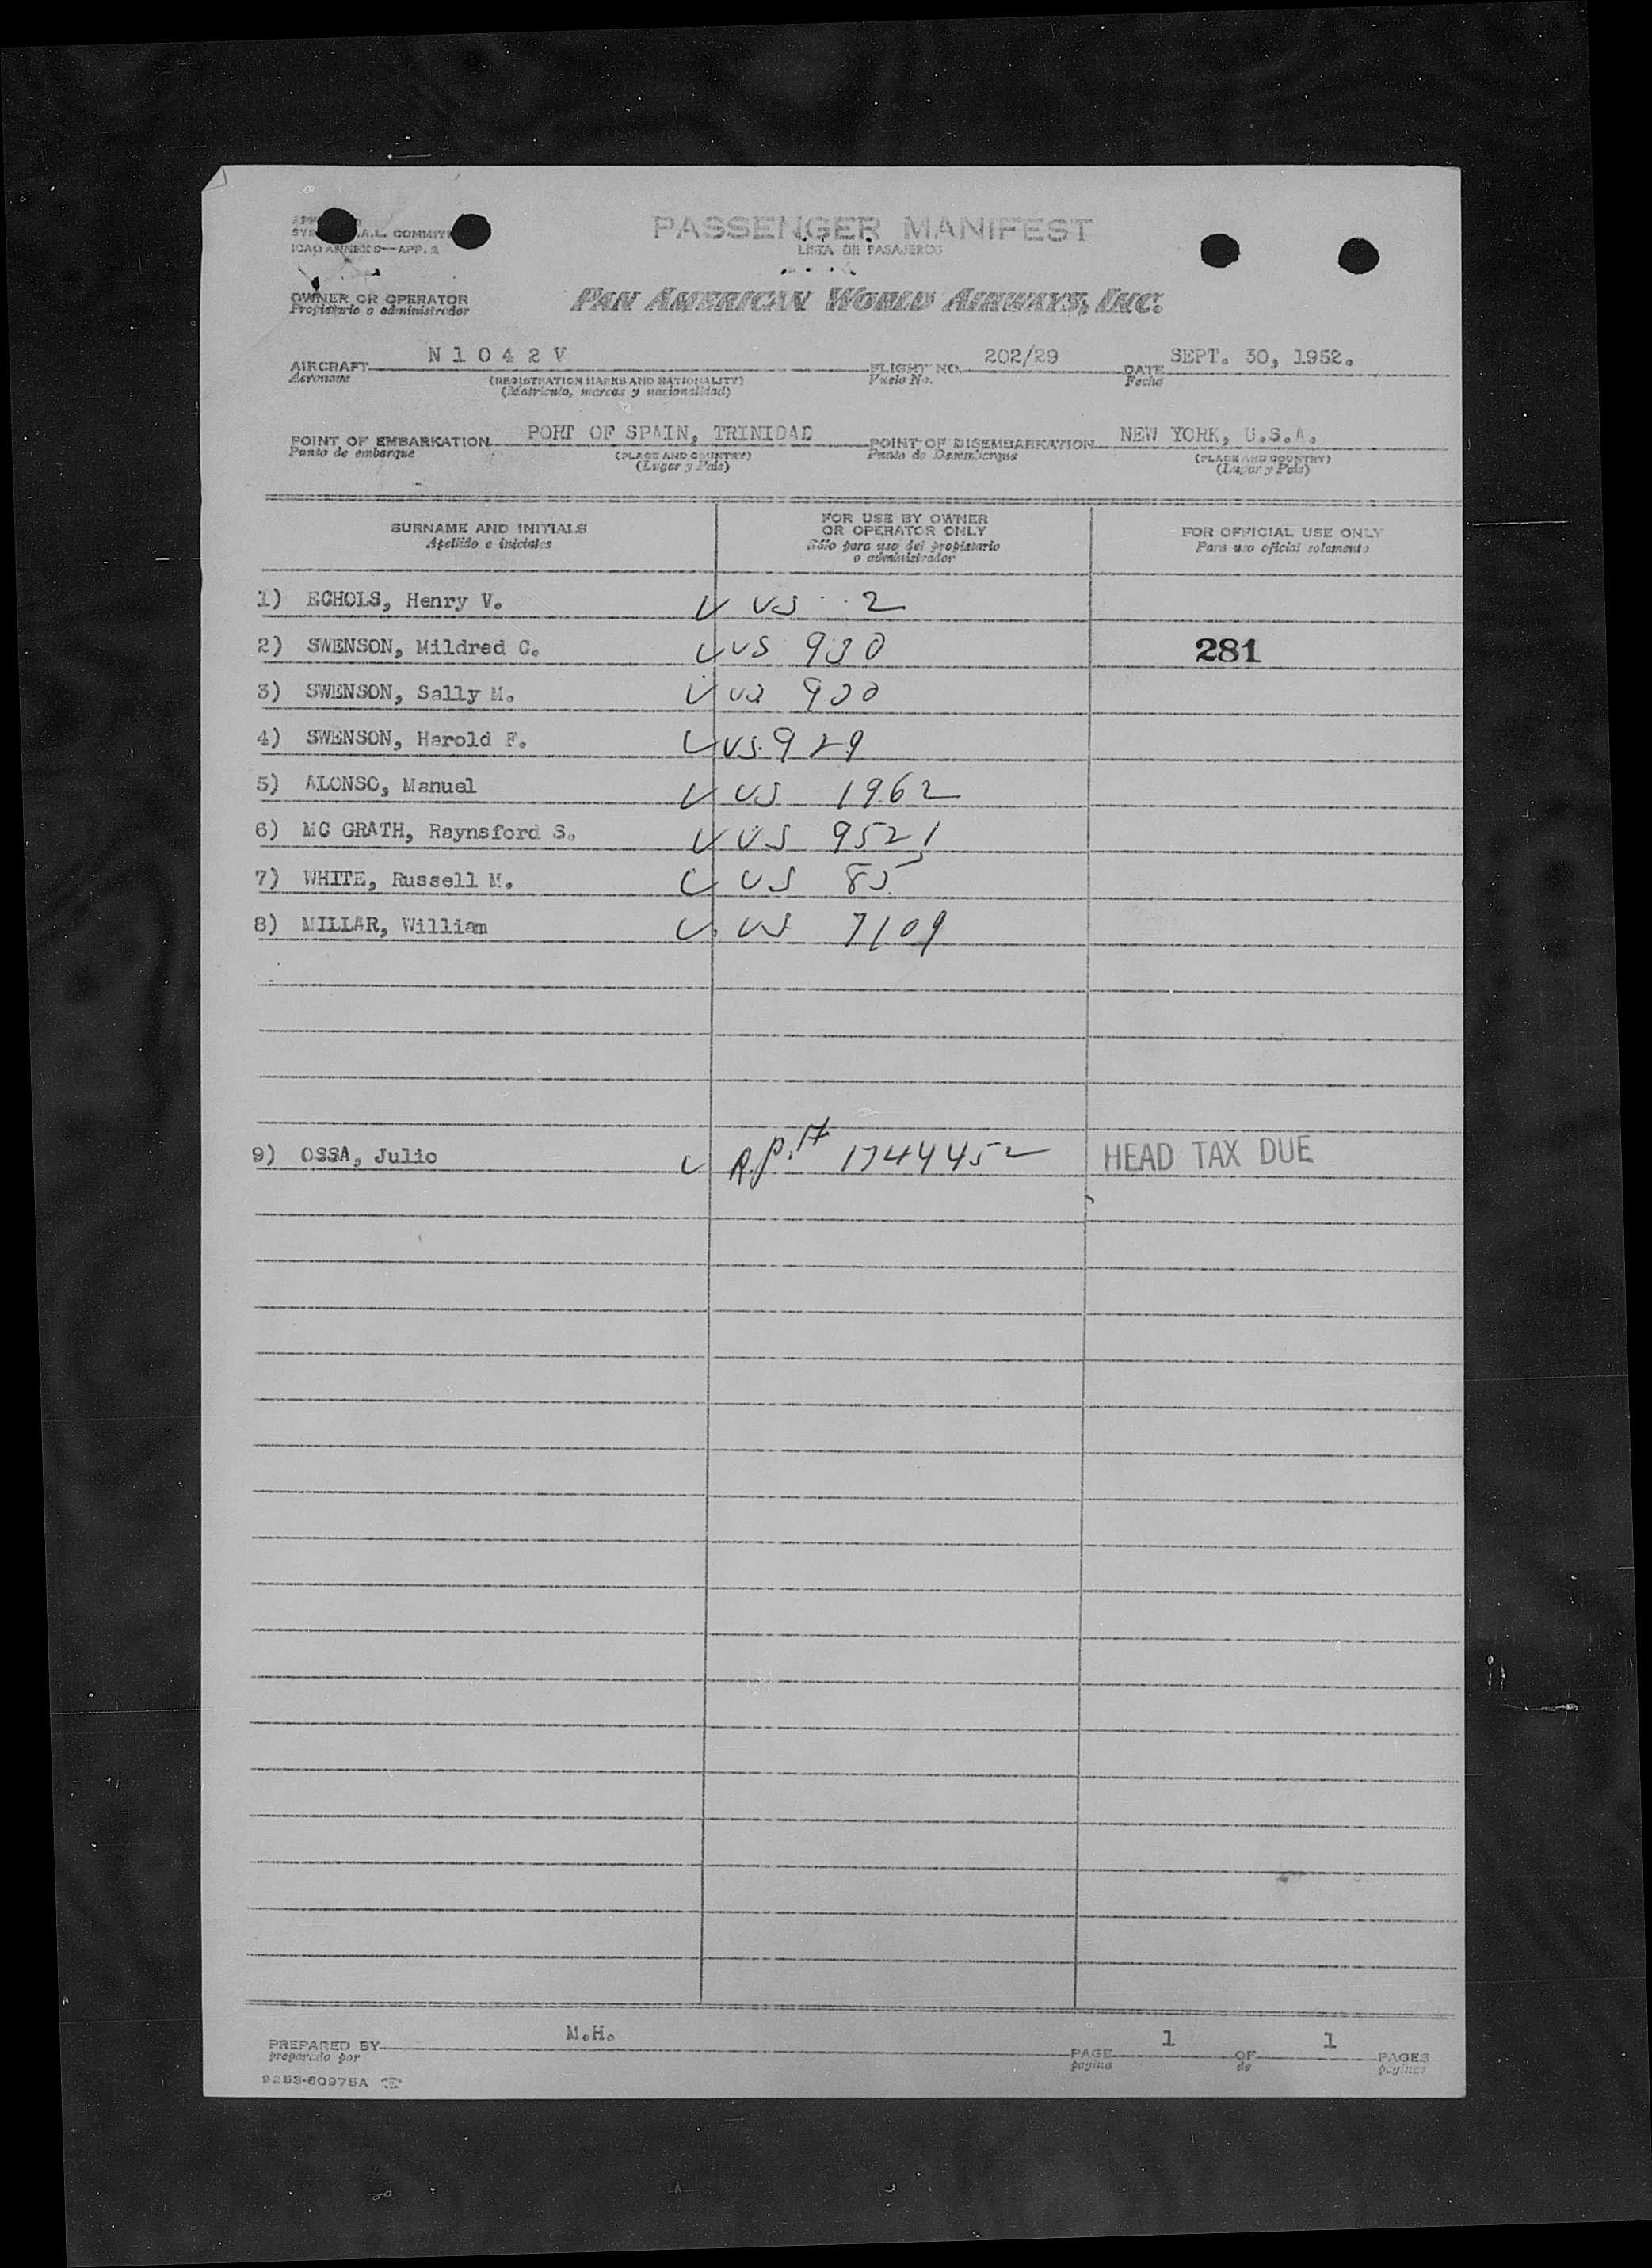 PASSENGER MANIFEST
LISTA DE PASAJEROS
ICAO ANNEX 9—APP. 2
OWNER OR OPERATOR
Propietario o administrador
PAN AMERICAN WORLD AIRWAYS, INC.
AIRCRAFT N 1 0 4 2 V FLIGHT NO. 202/29 DATE SEPT. 30, 1952.
Aeronave (REGISTRATION MARKS AND NATIONALITY) Vuelo No. Fecha
(Matricula, marcas y nacionalidad)
POINT OF EMBARKATION PORT OF SPAIN, TRINIDAD POINT OF DISEMBARKATION NEW YORK, U.S.A.
Punto de embarque (PLACE AND COUNTRY) Punto de Desembarque (PLACE AND COUNTRY)
(Lugar y País) (Lugar y País)
SURNAME AND INITIALS FOR USE BY OWNER OR OPERATOR ONLY FOR OFFICIAL USE ONLY
Apellido e iniciales Sólo para uso del propietario o administrador Para uso oficial solamente
1) ECHOLS, Henry V. US 2
2) SWENSON, Mildred C. US 930 281
3) SWENSON, Sally M. US 930
4) SWENSON, Harold F. US 929
5) ALONSO, Manuel US 1962
6) MC GRATH, Raynsford S. US 9521
7) WHITE, Russell M. US 85
8) MILLAR, William US 7109
9) OSSA, Julio 1744452 HEAD TAX DUE
PREPARED BY M.H. PAGE 1 OF 1 PAGES
preparado por pagina de paginas
9253-60975A